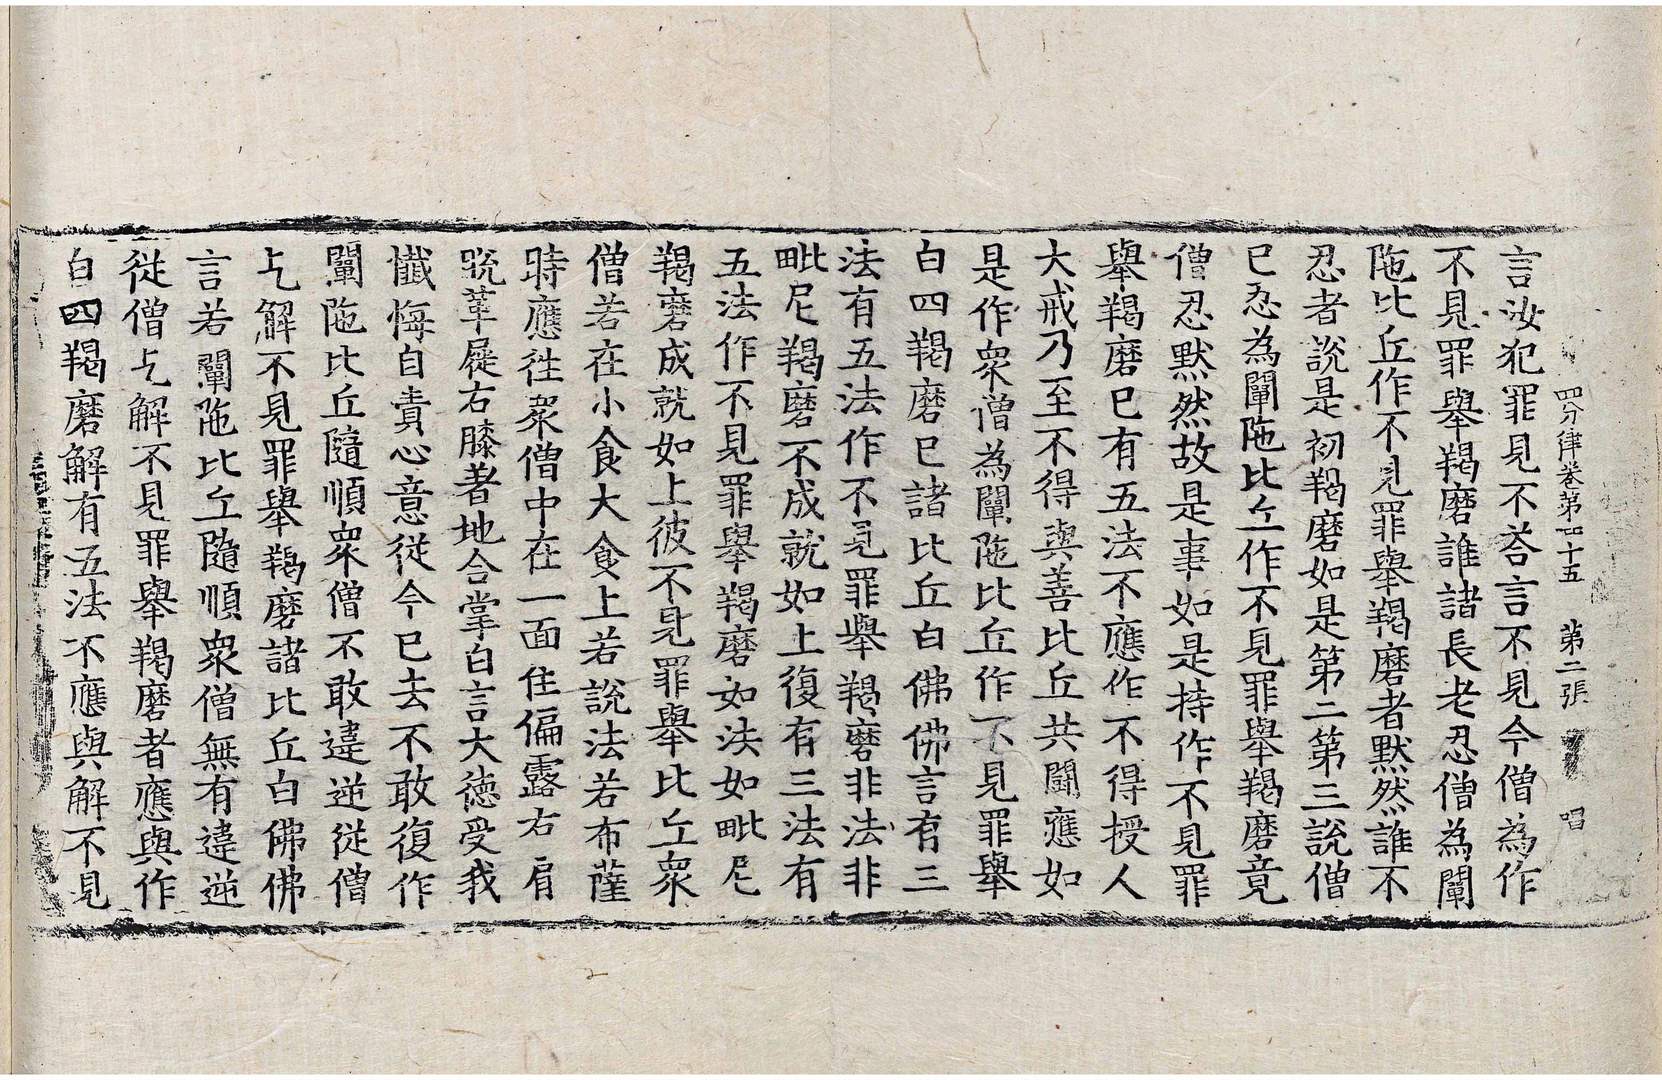 四分律卷第四十五 第二張 唱
言汝犯罪見不荅言不見今僧為作
不見罪舉羯磨誰諸長老忍僧為闡
陁比丘作不見罪舉羯磨者默然誰不
忍者說是初羯磨如是第二第三說僧
已忍為闡陁比丘作不見罪舉羯磨竟
僧忍默然故是事如是持作不見罪
舉羯磨已有五法不應作不得授人
大戒乃至不得與善比丘共鬪應如
是作衆僧為闡陁比丘作不見罪舉
白四羯磨已諸比丘白佛佛言有三
法有五法作不見罪舉羯磨非法非
毗尼羯磨不成就如上復有三法有
五法作不見罪舉羯磨如法如毗尼
羯磨成就如上彼不見罪舉比丘衆
僧若在小食大食上若說法若布薩
時應徃衆僧中在一面住偏露右肩
脫革屣右膝著地合掌白言大德受我
懺悔自責心意從今已去不敢復作
闡陁比丘隨順衆僧不敢違逆從僧
乞解不見罪舉羯磨諸比丘白佛佛
言若闡陁比丘隨順衆僧無有違逆
從僧乞解不見罪舉羯磨者應與作
白四羯磨解有五法不應與解不見